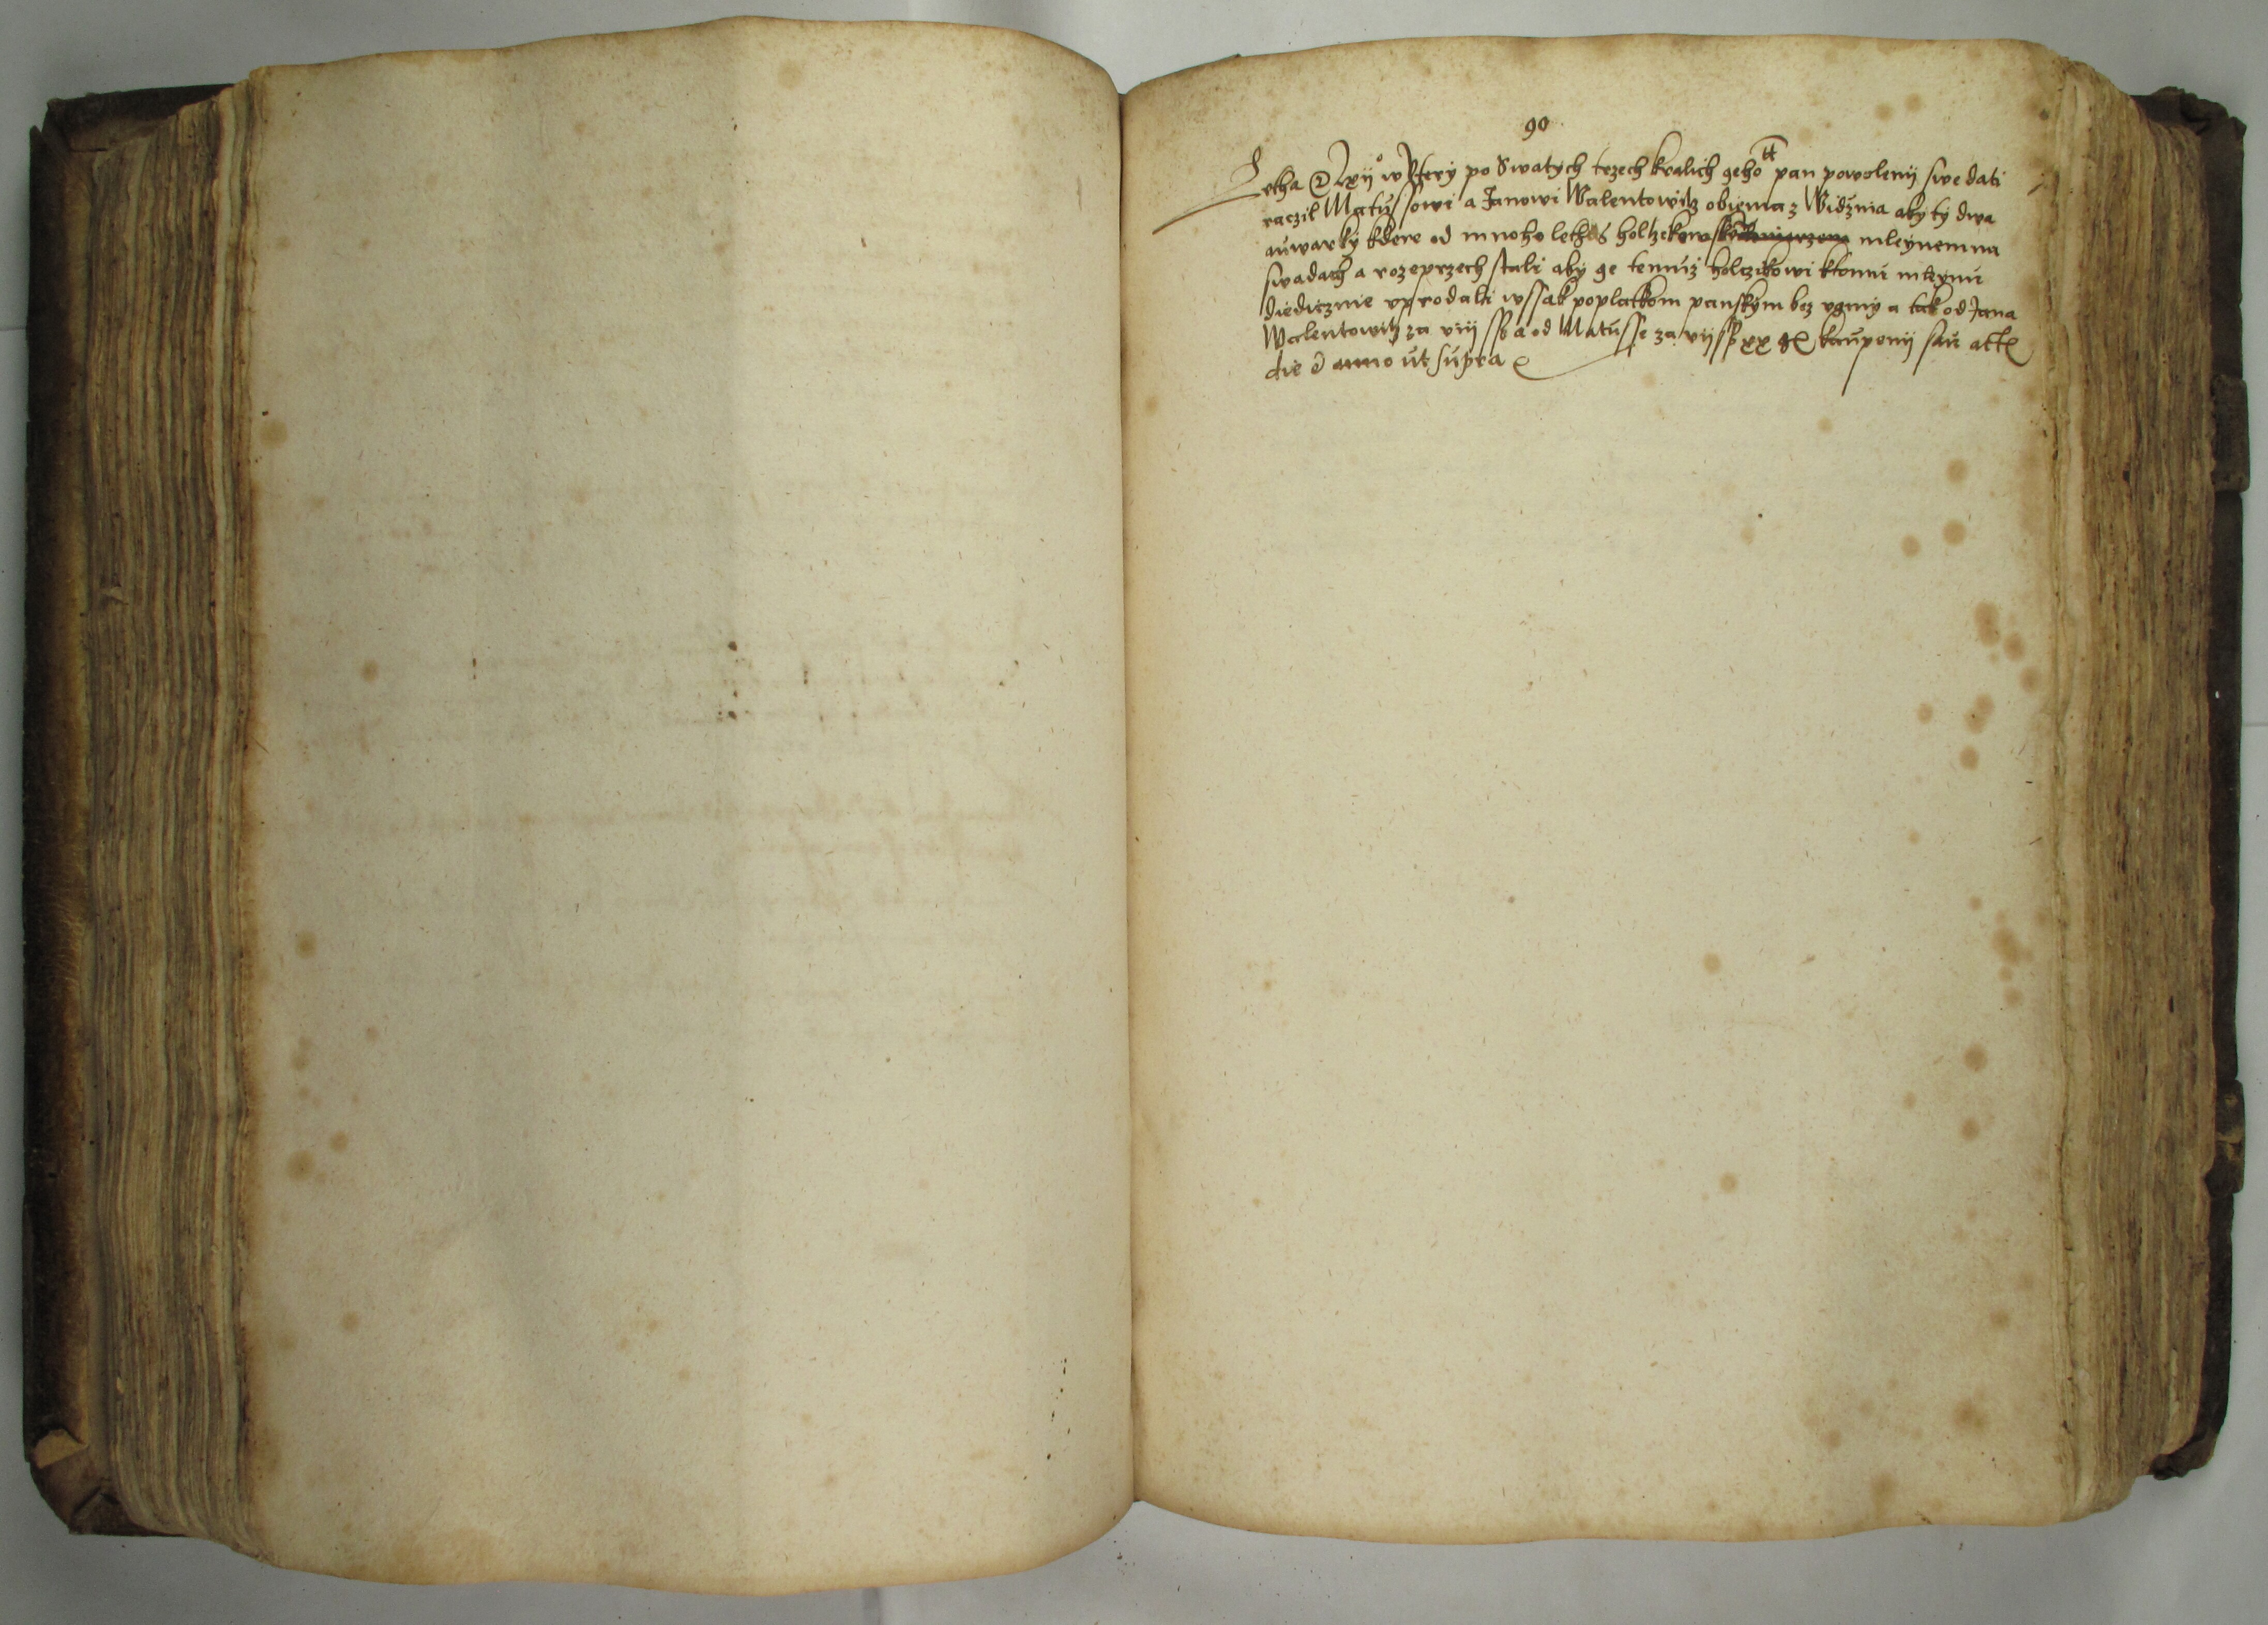 90
Letha Lxijº w Vtery po Swatych trzech kralich geho tt pan powolenij swe dati
raczil Matussowi a Janowi Walentowitz obiema z Widznia aby ty dwa
auwarky kdere od mnoho leth s holtzkem mleynem na
swadach a rozeprzech stali aby ge temuz holczkowi ktomu mleynu
diedicznie vprodali wssak poplatkom panskym bez vgmy a tak od Jana
Walentowitz za viij ss a od Matusse za vij ss xx g kaupenij sau att
die anno ut supra